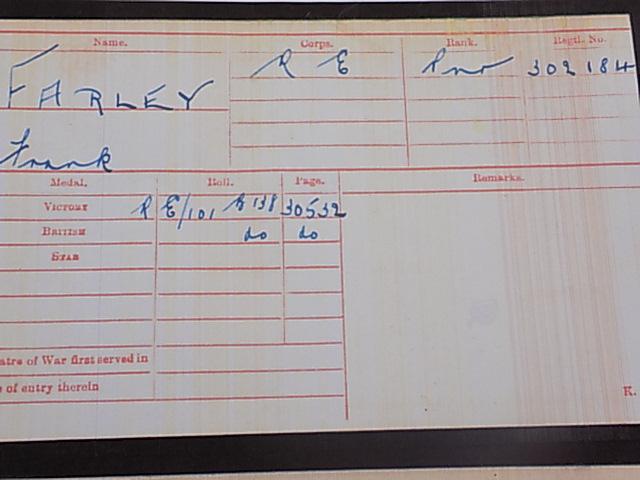 Name. Corps. Rank. Regtl. No.
FARLEY R E Pnr 302184
Frank
Medal. Roll. Page. Remarks.
VICTORY R E/101 B 138 30532
BRITISH do do
STAR
atre of War first served in
e of entry therein
K.